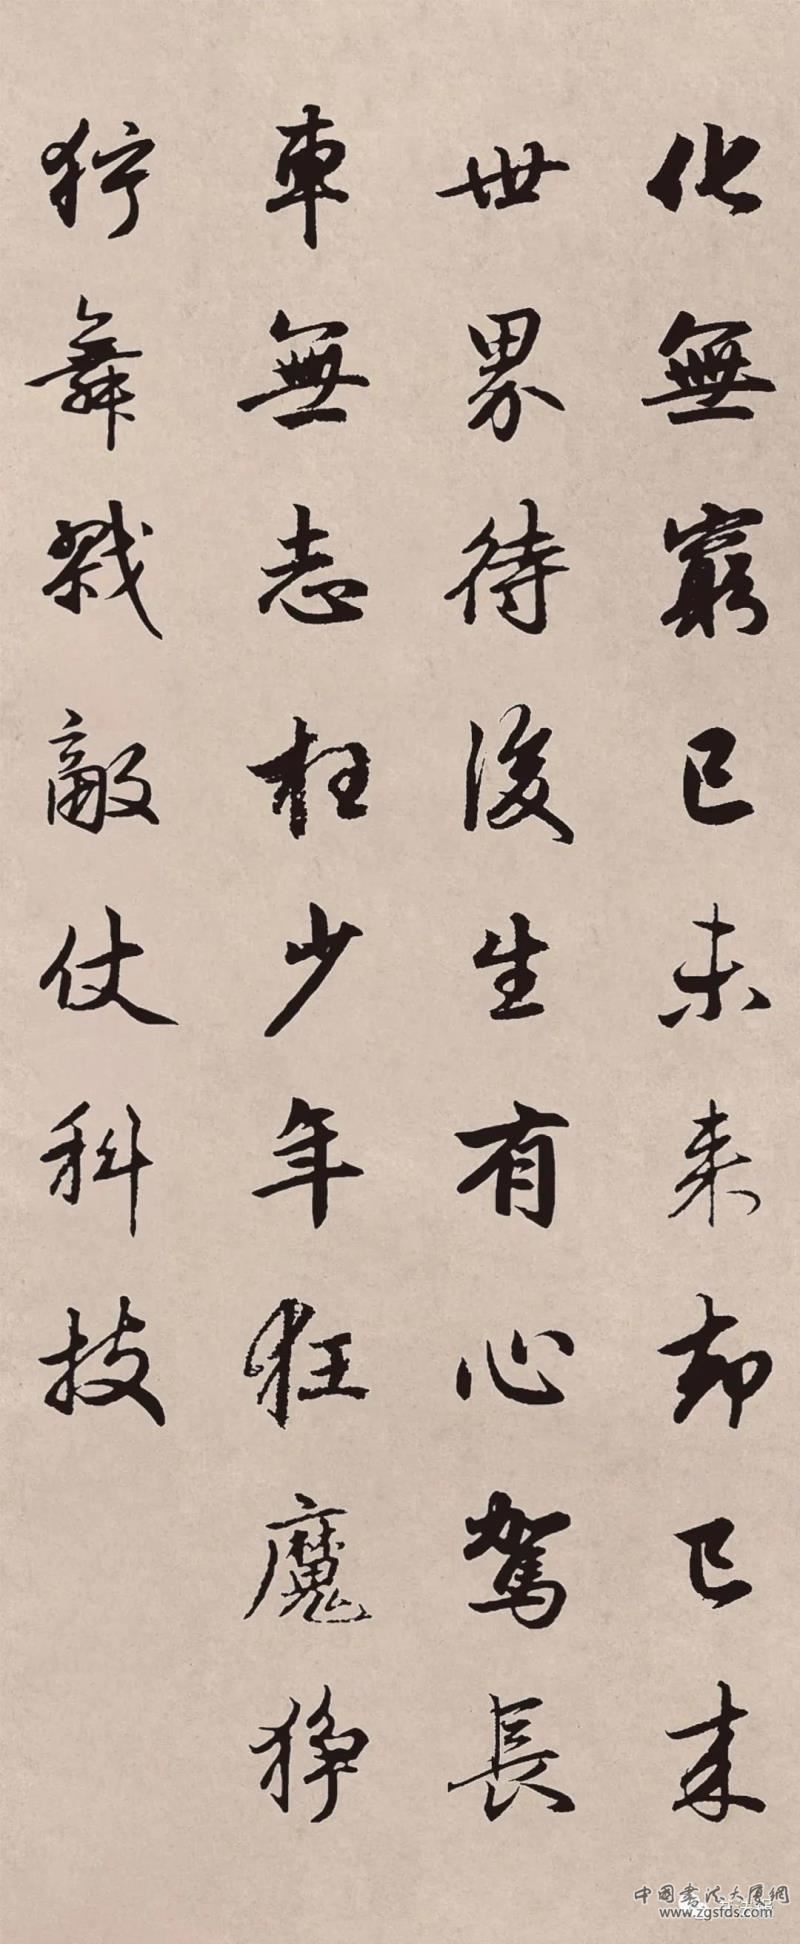 化無窮已未來却已來
世界待後生有心駕長
車無志枉少年狂魔狰
狞舞戟敵仗科技
中國書法大厦網
www.zgsfds.com